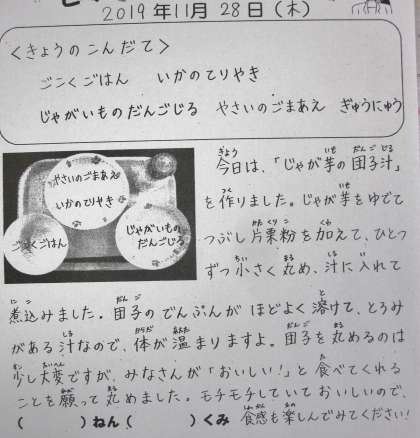 2019年11月28日(木)
<きょうのこんだて>
ごこくごはん　いかのてりやき
じゃがいものだんごじる　やさいのごまあえ　ぎゅうにゅう
やさいのごまあえ
いかのてりやき
ごこくごはん
じゃがいもの
だんごじる
今日は、「じゃが芋の団子汁」
を作りました。じゃが芋をゆでて
つぶし片栗粉を加えて、ひとつ
ずつ小さく丸め、汁に入れて
煮込みました。団子のでんぷんがほどよく溶けて、とろみ
がある汁なので、体が温まりますよ。団子を丸めるのは
少し大変ですが、みなさんが「おいしい!」と食べてくれる
ことを願って丸めました。モチモチしていておいしいので、
(　　　)ねん(　　　)くみ 食感も楽しんでみてください!